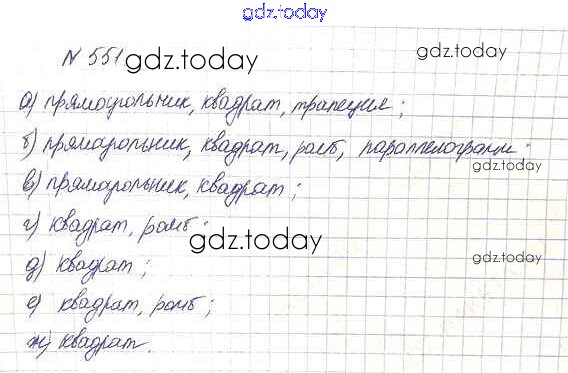 gdz.today
N 551 gdz.today
gdz.today
а) прямоугольник, квадрат, трапеция;
б) прямоугольник, квадрат, ромб, параллелограмм.
gdz.today
в) прямоугольник, квадрат;
г) квадрат, ромб;
gdz.today
gdz.today
д) квадрат;
е) квадрат, ромб;
ж) квадрат.